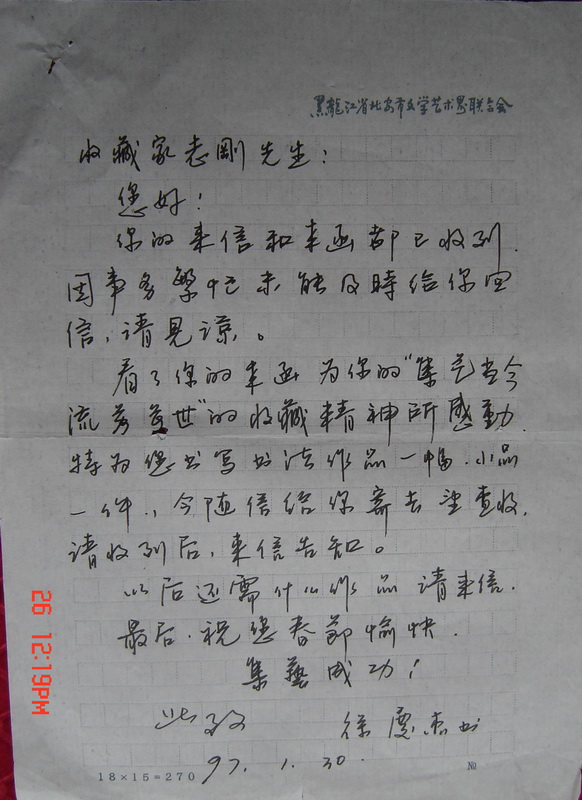 黑龍江省北安市文学艺术界联合会
收藏家志剛先生:
您好!
你的来信和来函都已收到.
因事务繁忙未能及時给你回
信,请見谅。
看了你的来函为你的“集艺当今
流芳萬世”的收藏精神所感動.
特为您书写书法作品一幅.小品
一件,今随信给你寄去望查收.
请收到后,来信告知。
以后还需什么作品请来信.
最后.祝您春節愉快.
集藝成功!
此致
徐慶杰书
97.1.30.
18×15=270
№
26 12:19PM